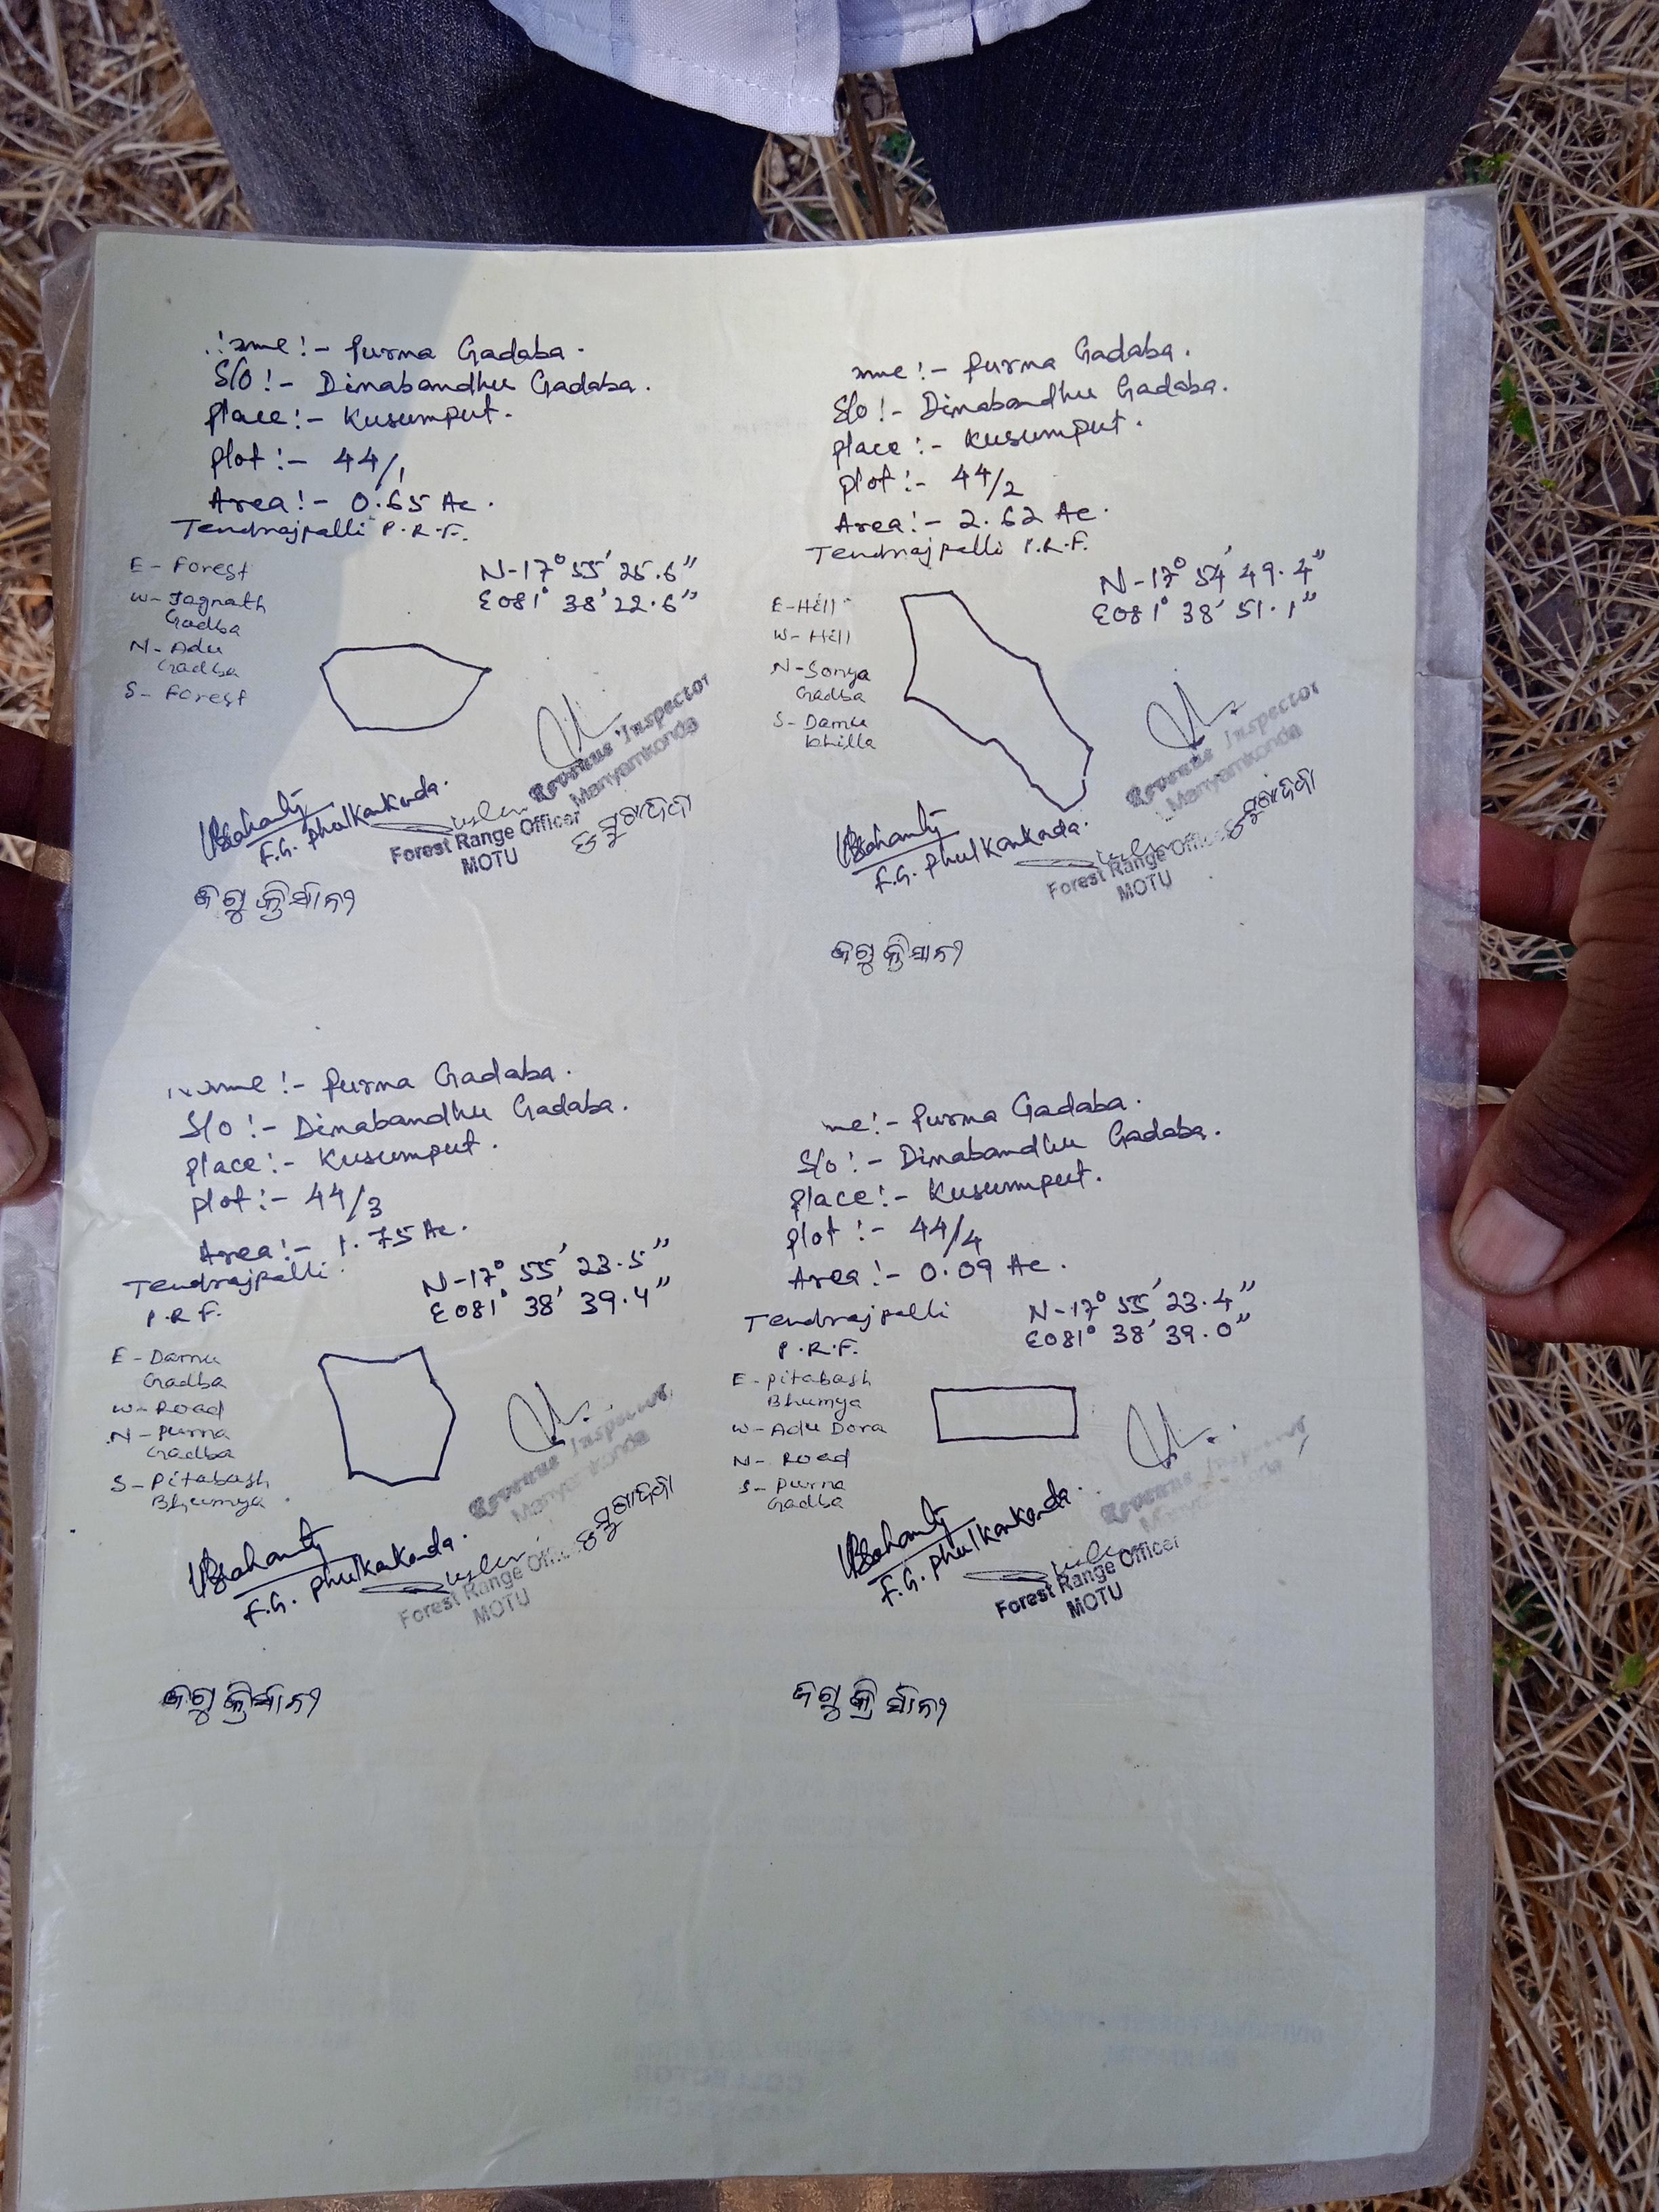 Name :- Purna Gadaba.
S/o :- Dinabandhu Gadaba.
Place :- Kusumput.
Plot :- 44/1
Area :- 0.65 Ac.
Tendrajpalli P.R.F.
N-17° 55' 25.6"
E081° 38' 22.6"
E - Forest
W- Jagnath
Gadba
N- Adu
Gadba
S- Forest
Revenue Inspector
Manyamkonda
F.G. Phulkankonda.
Forest Range Officer
MOTU
me :- Purna Gadaba.
S/o :- Dinabandhu Gadaba.
Place :- Kusumput.
Plot :- 44/2
Area :- 2.62 Ac.
Tendrajpalli P.R.F.
N-17° 54' 49.4"
E081° 38' 51.1"
E-Hill
W- Hill
N-Sonya
Gadba
S- Damu
Revenue Inspector
Manyamkonda
F.G. Phulkankonda.
Forest Range Officer
MOTU
Name :- Purna Gadaba.
S/o :- Dinabandhu Gadaba.
Place :- Kusumput.
Plot :- 44/3
Area :- 1.75 Ac.
Tendrajpalli
P.R.F.
N-17° 55' 23.5"
E081° 38' 39.4"
E - Damu
Gadba
W- Road
N- Purna
Gadba
S- Pitabash
Bhumya
Revenue Inspector
Manyamkonda
F.G. Phulkankonda.
Forest Range Officer
MOTU
me :- Purna Gadaba.
S/o :- Dinabandhu Gadaba.
Place :- Kusumput.
Plot :- 44/4
Area :- 0.09 Ac.
Tendrajpalli
P.R.F.
N-17° 55' 23.4"
E081° 38' 39.0"
E - Pitabash
Bhumya
W- Adu Dora
N- Road
S- Purna
Gadba
Revenue Inspector
F.G. Phulkankonda.
Forest Range Officer
MOTU